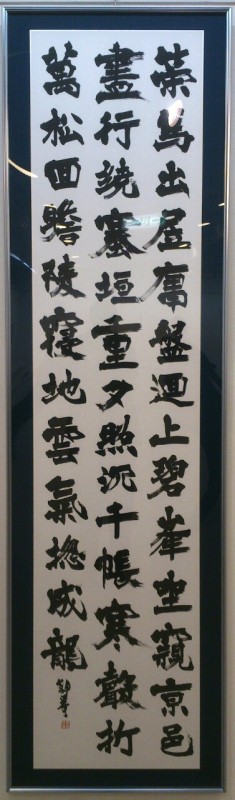 策馬出居庸盤迴上碧峯坐窺京邑
盡行繞塞垣重夕照沉千帳寒聲折
萬松回瞻陵寢地雲氣摠成龍